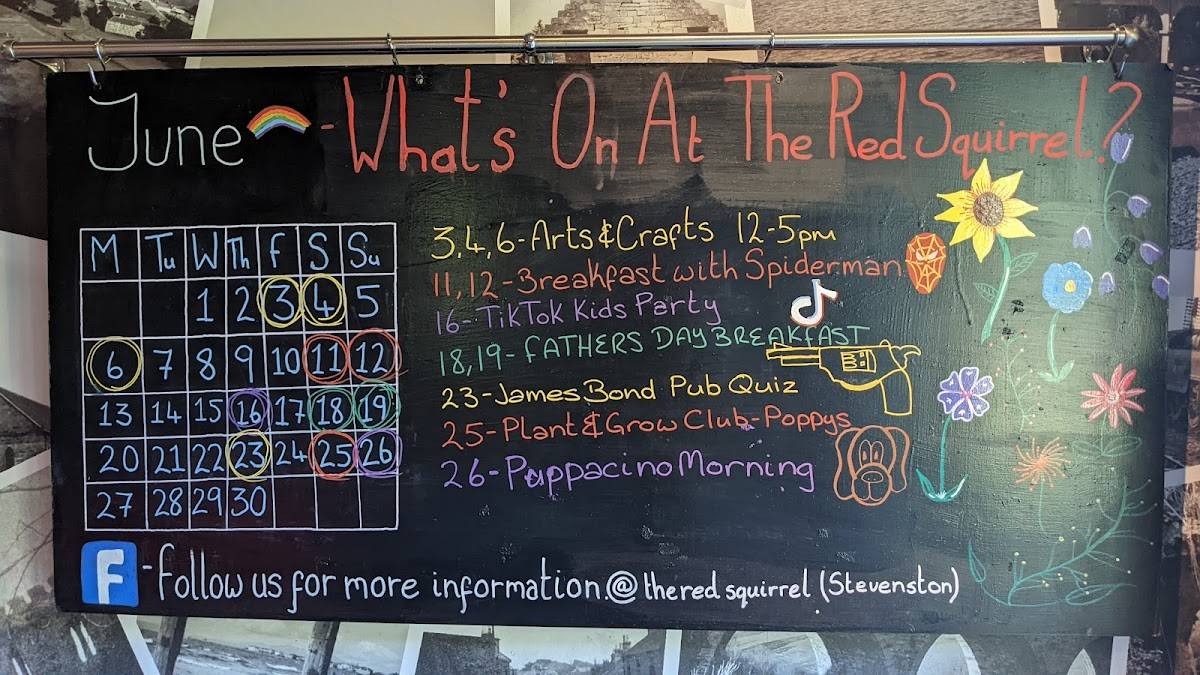 June - What's On At The Red Squirrel?
M Tu W Th F S Su
1 2 3 4 5
6 7 8 9 10 11 12
13 14 15 16 17 18 19
20 21 22 23 24 25 26
27 28 29 30
3,4,6-Arts & Crafts 12-5pm
11,12-Breakfast with Spiderman
16-TikTok Kids Party
18,19-FATHERS DAY BREAKFAST
23-James Bond Pub Quiz
25-Plant & Grow Club-Poppys
26-Puppacino Morning
f - Follow us for more information @ the red squirrel (Stevenston)